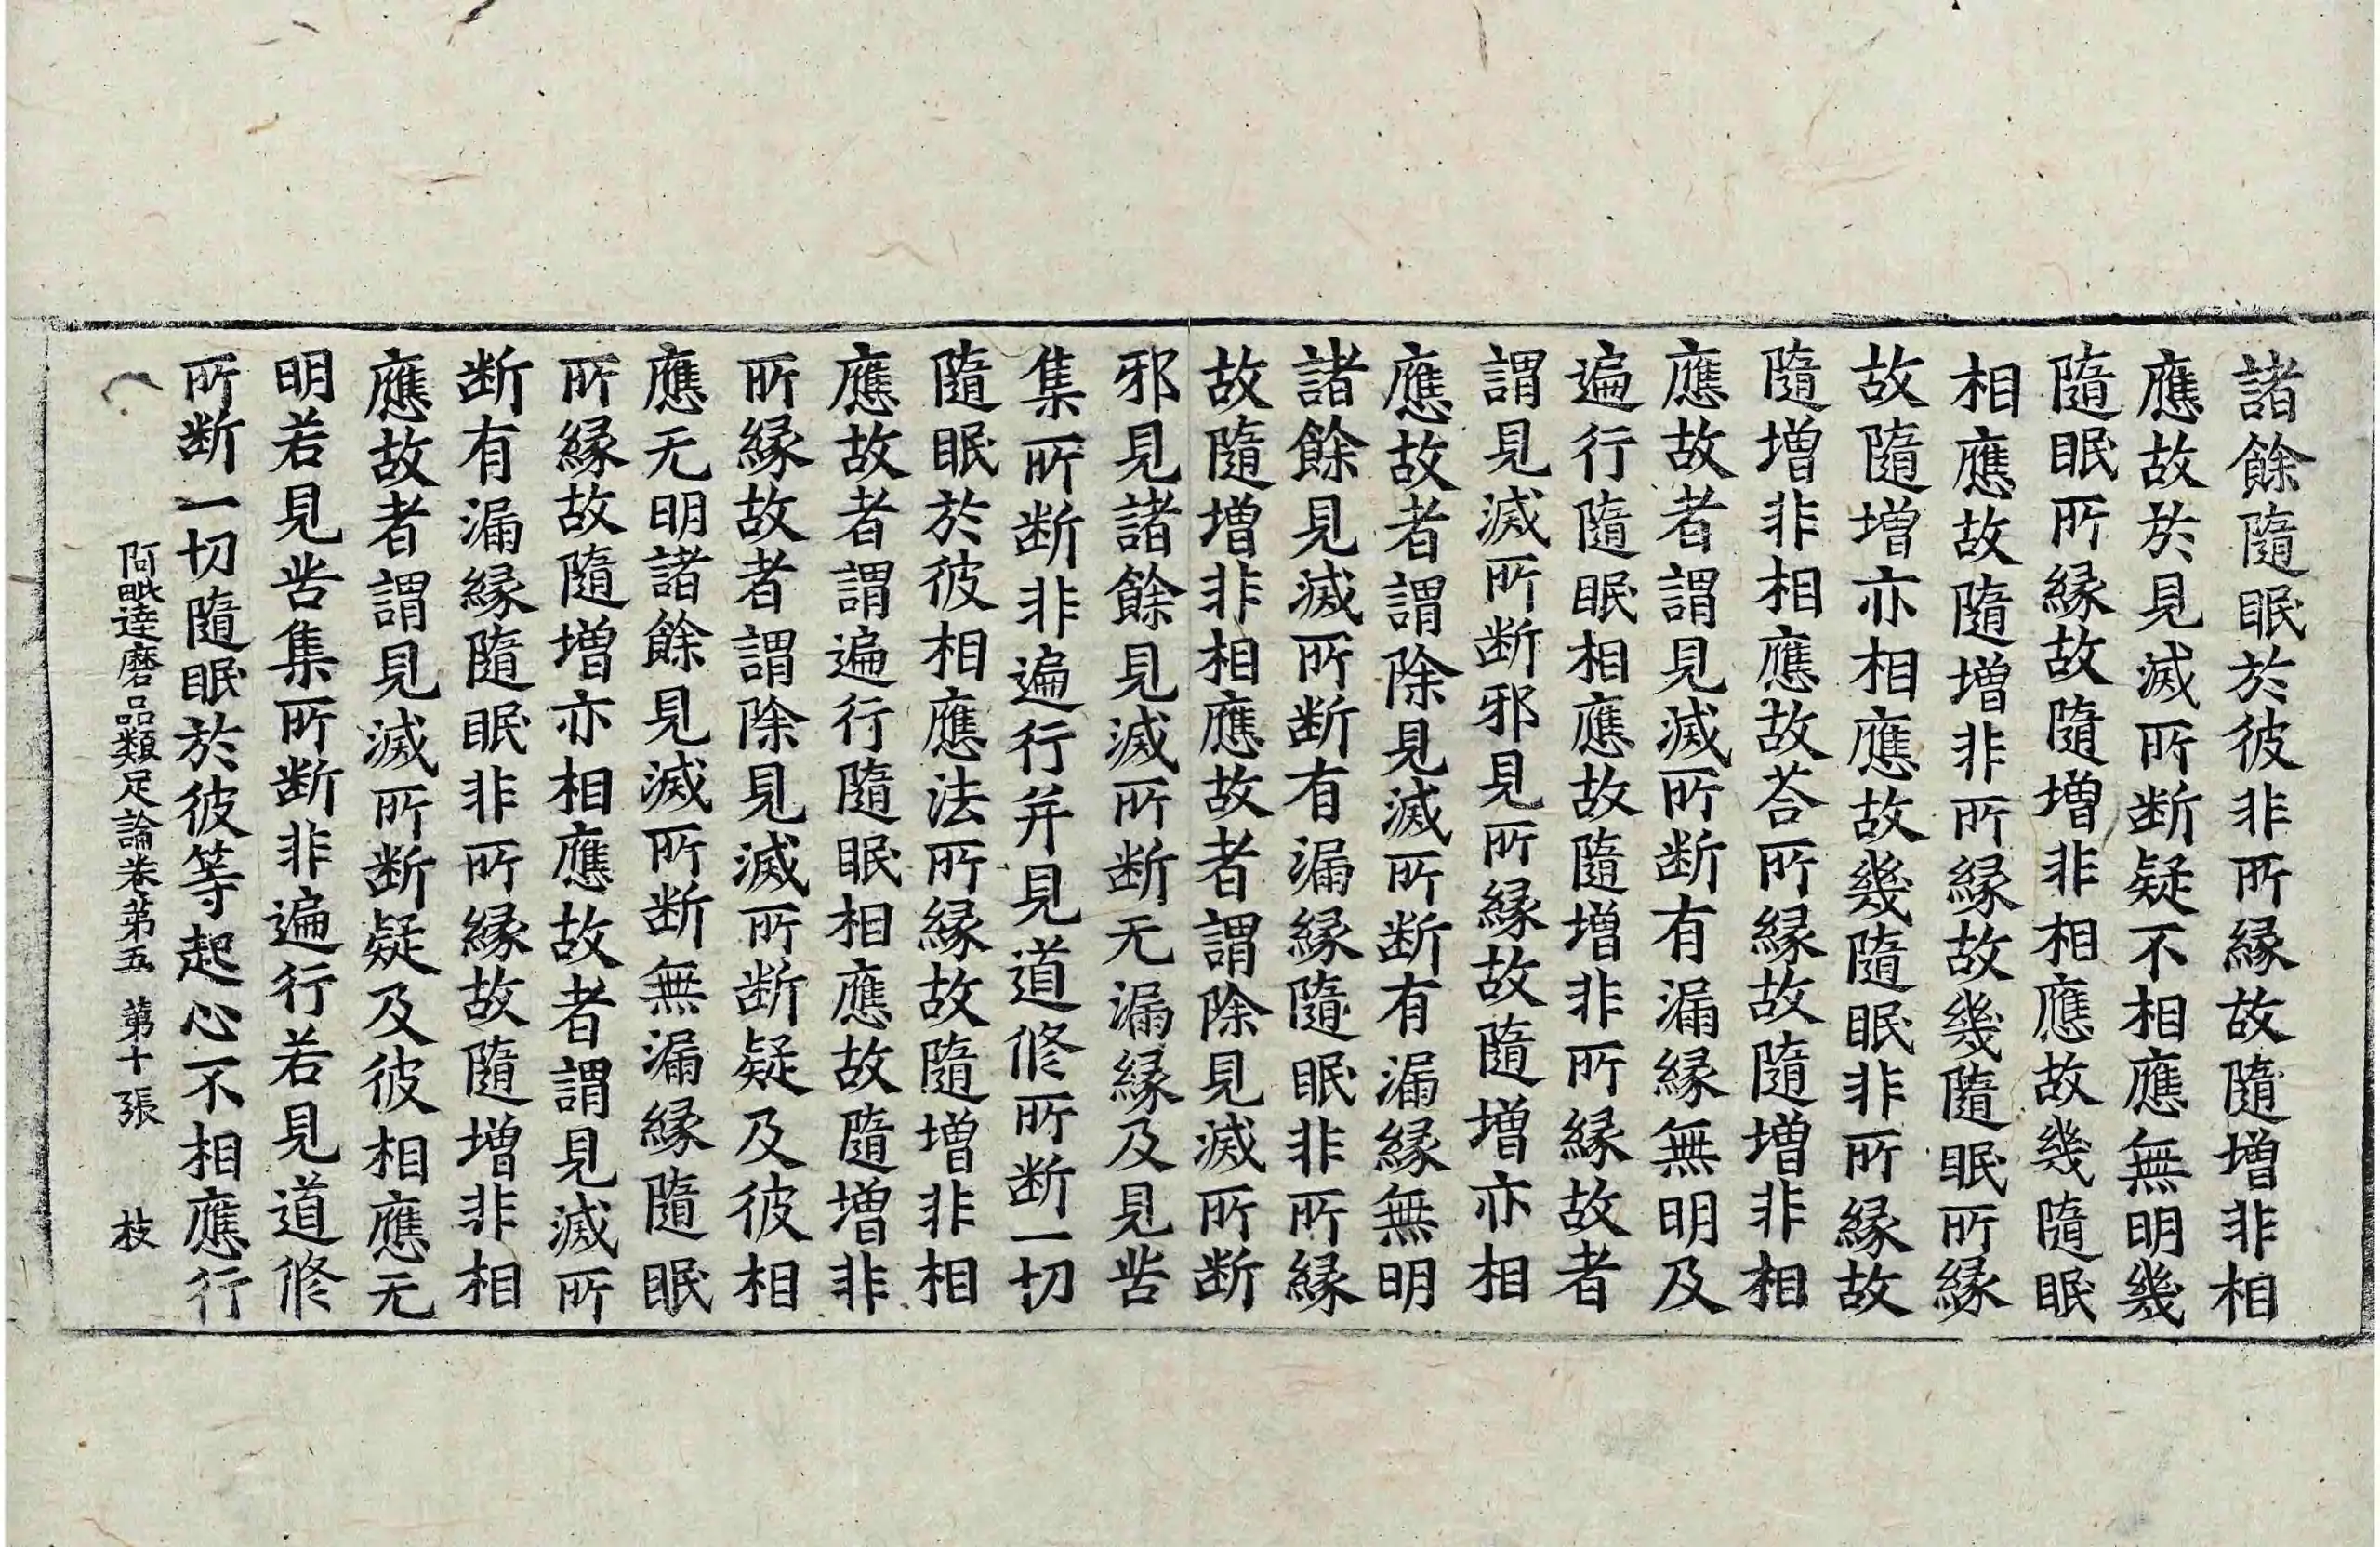 諸餘隨眠於彼非所縁故隨增非相
應故於見滅所断疑不相應無明幾
隨眠所縁故隨增非相應故幾隨眠
相應故隨增非所縁故幾隨眠所縁
故隨增亦相應故幾隨眠非所縁故
隨增非相應故荅所縁故隨增非相
應故者謂見滅所断有漏縁無明及
遍行隨眠相應故隨增非所縁故者
謂見滅所断邪見所縁故隨增亦相
應故者謂除見滅所断有漏縁無明
諸餘見滅所断有漏縁隨眠非所縁
故隨增非相應故者謂除見滅所断
邪見諸餘見滅所断无漏縁及見苦
集所断非遍行并見道修所断一切
隨眠於彼相應法所縁故隨增非相
應故者謂遍行隨眠相應故隨增非
所縁故者謂除見滅所断疑及彼相
應无明諸餘見滅所断無漏縁隨眠
所縁故隨增亦相應故者謂見滅所
断有漏縁隨眠非所縁故隨增非相
應故者謂見滅所断疑及彼相應无
明若見苦集所断非遍行若見道修
所断一切隨眠於彼等起心不相應行
阿毗達磨品類足論卷苐五 苐十張 枝